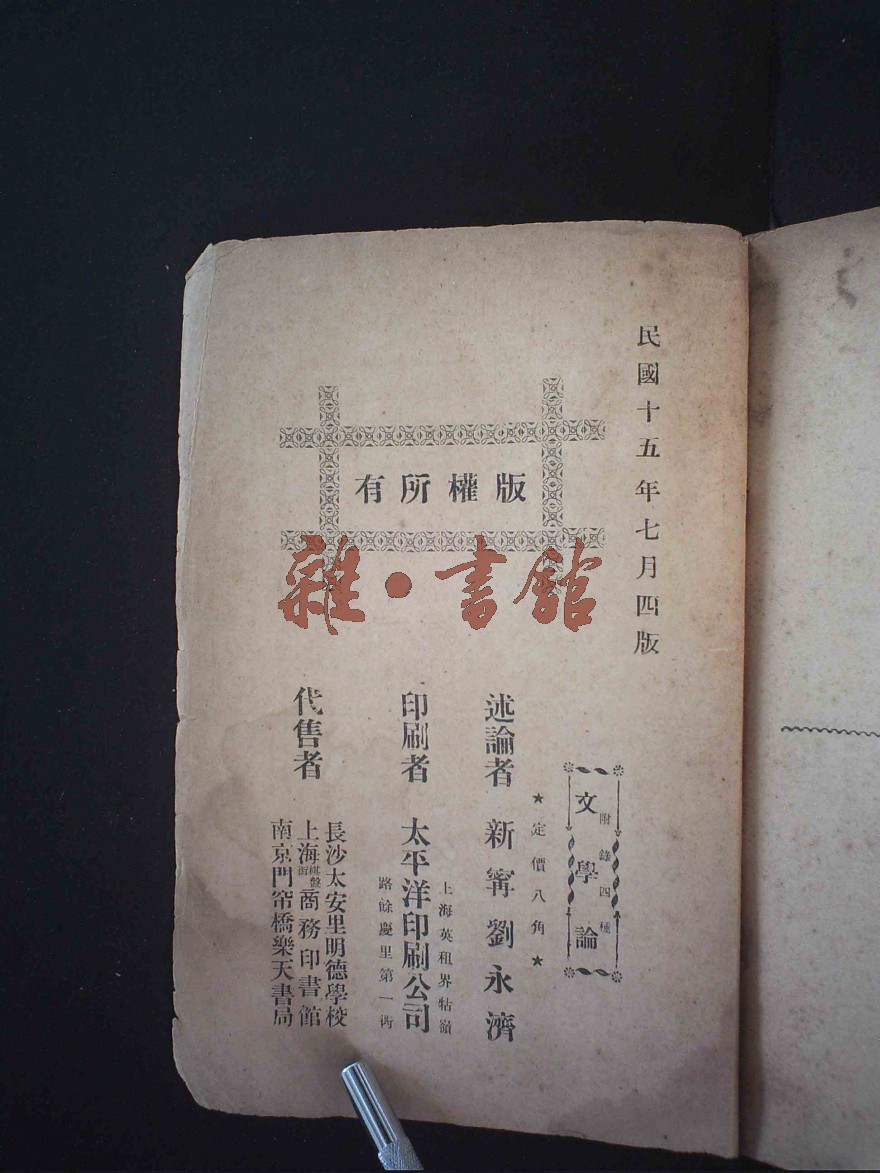 民國十五年七月四版
版權所有
雜·書館
文學論
附錄四種
★定價八角★
述論者 新寗劉永濟
上海英租界牯嶺
路餘慶里第一衖
印刷者 太平洋印刷公司
代售者
長沙太安里明德學校
上海棋盤街商務印書館
南京門帘橋樂天書局